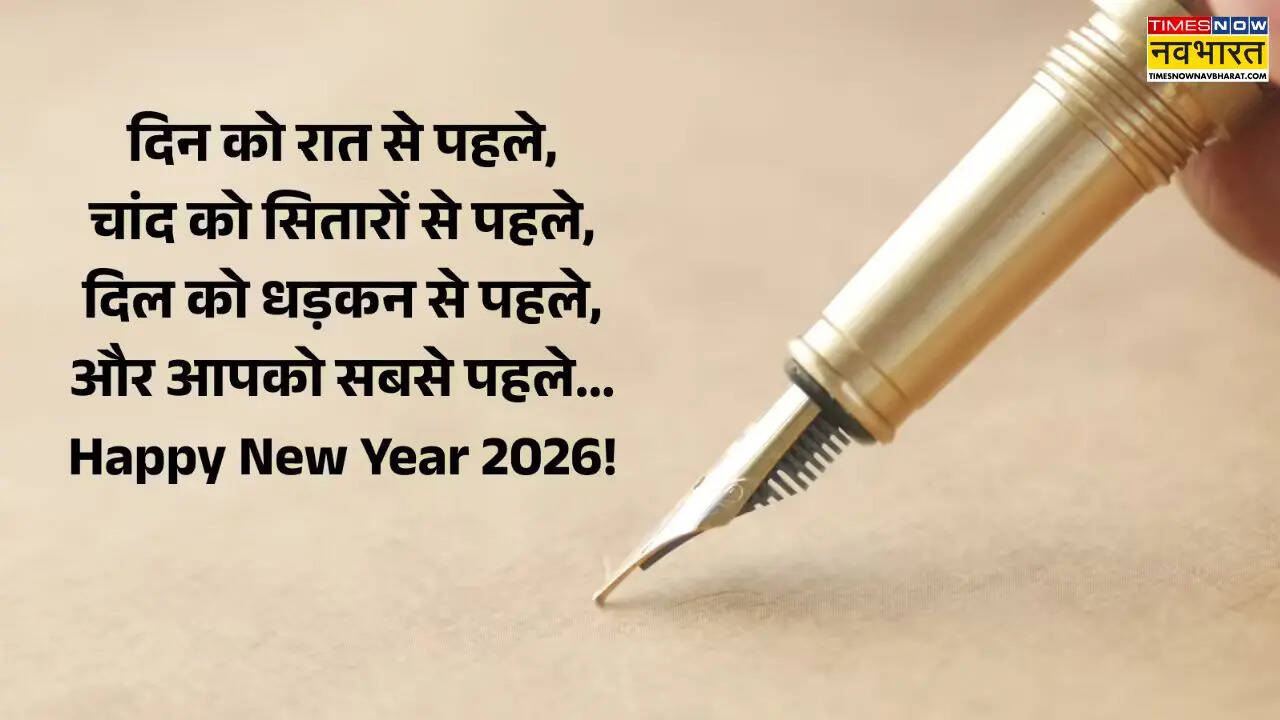 TIMES NOW
नवभारत
TIMESNOWNAVBHARAT.COM
दिन को रात से पहले,
चांद को सितारों से पहले,
दिल को धड़कन से पहले,
और आपको सबसे पहले...
Happy New Year 2026!